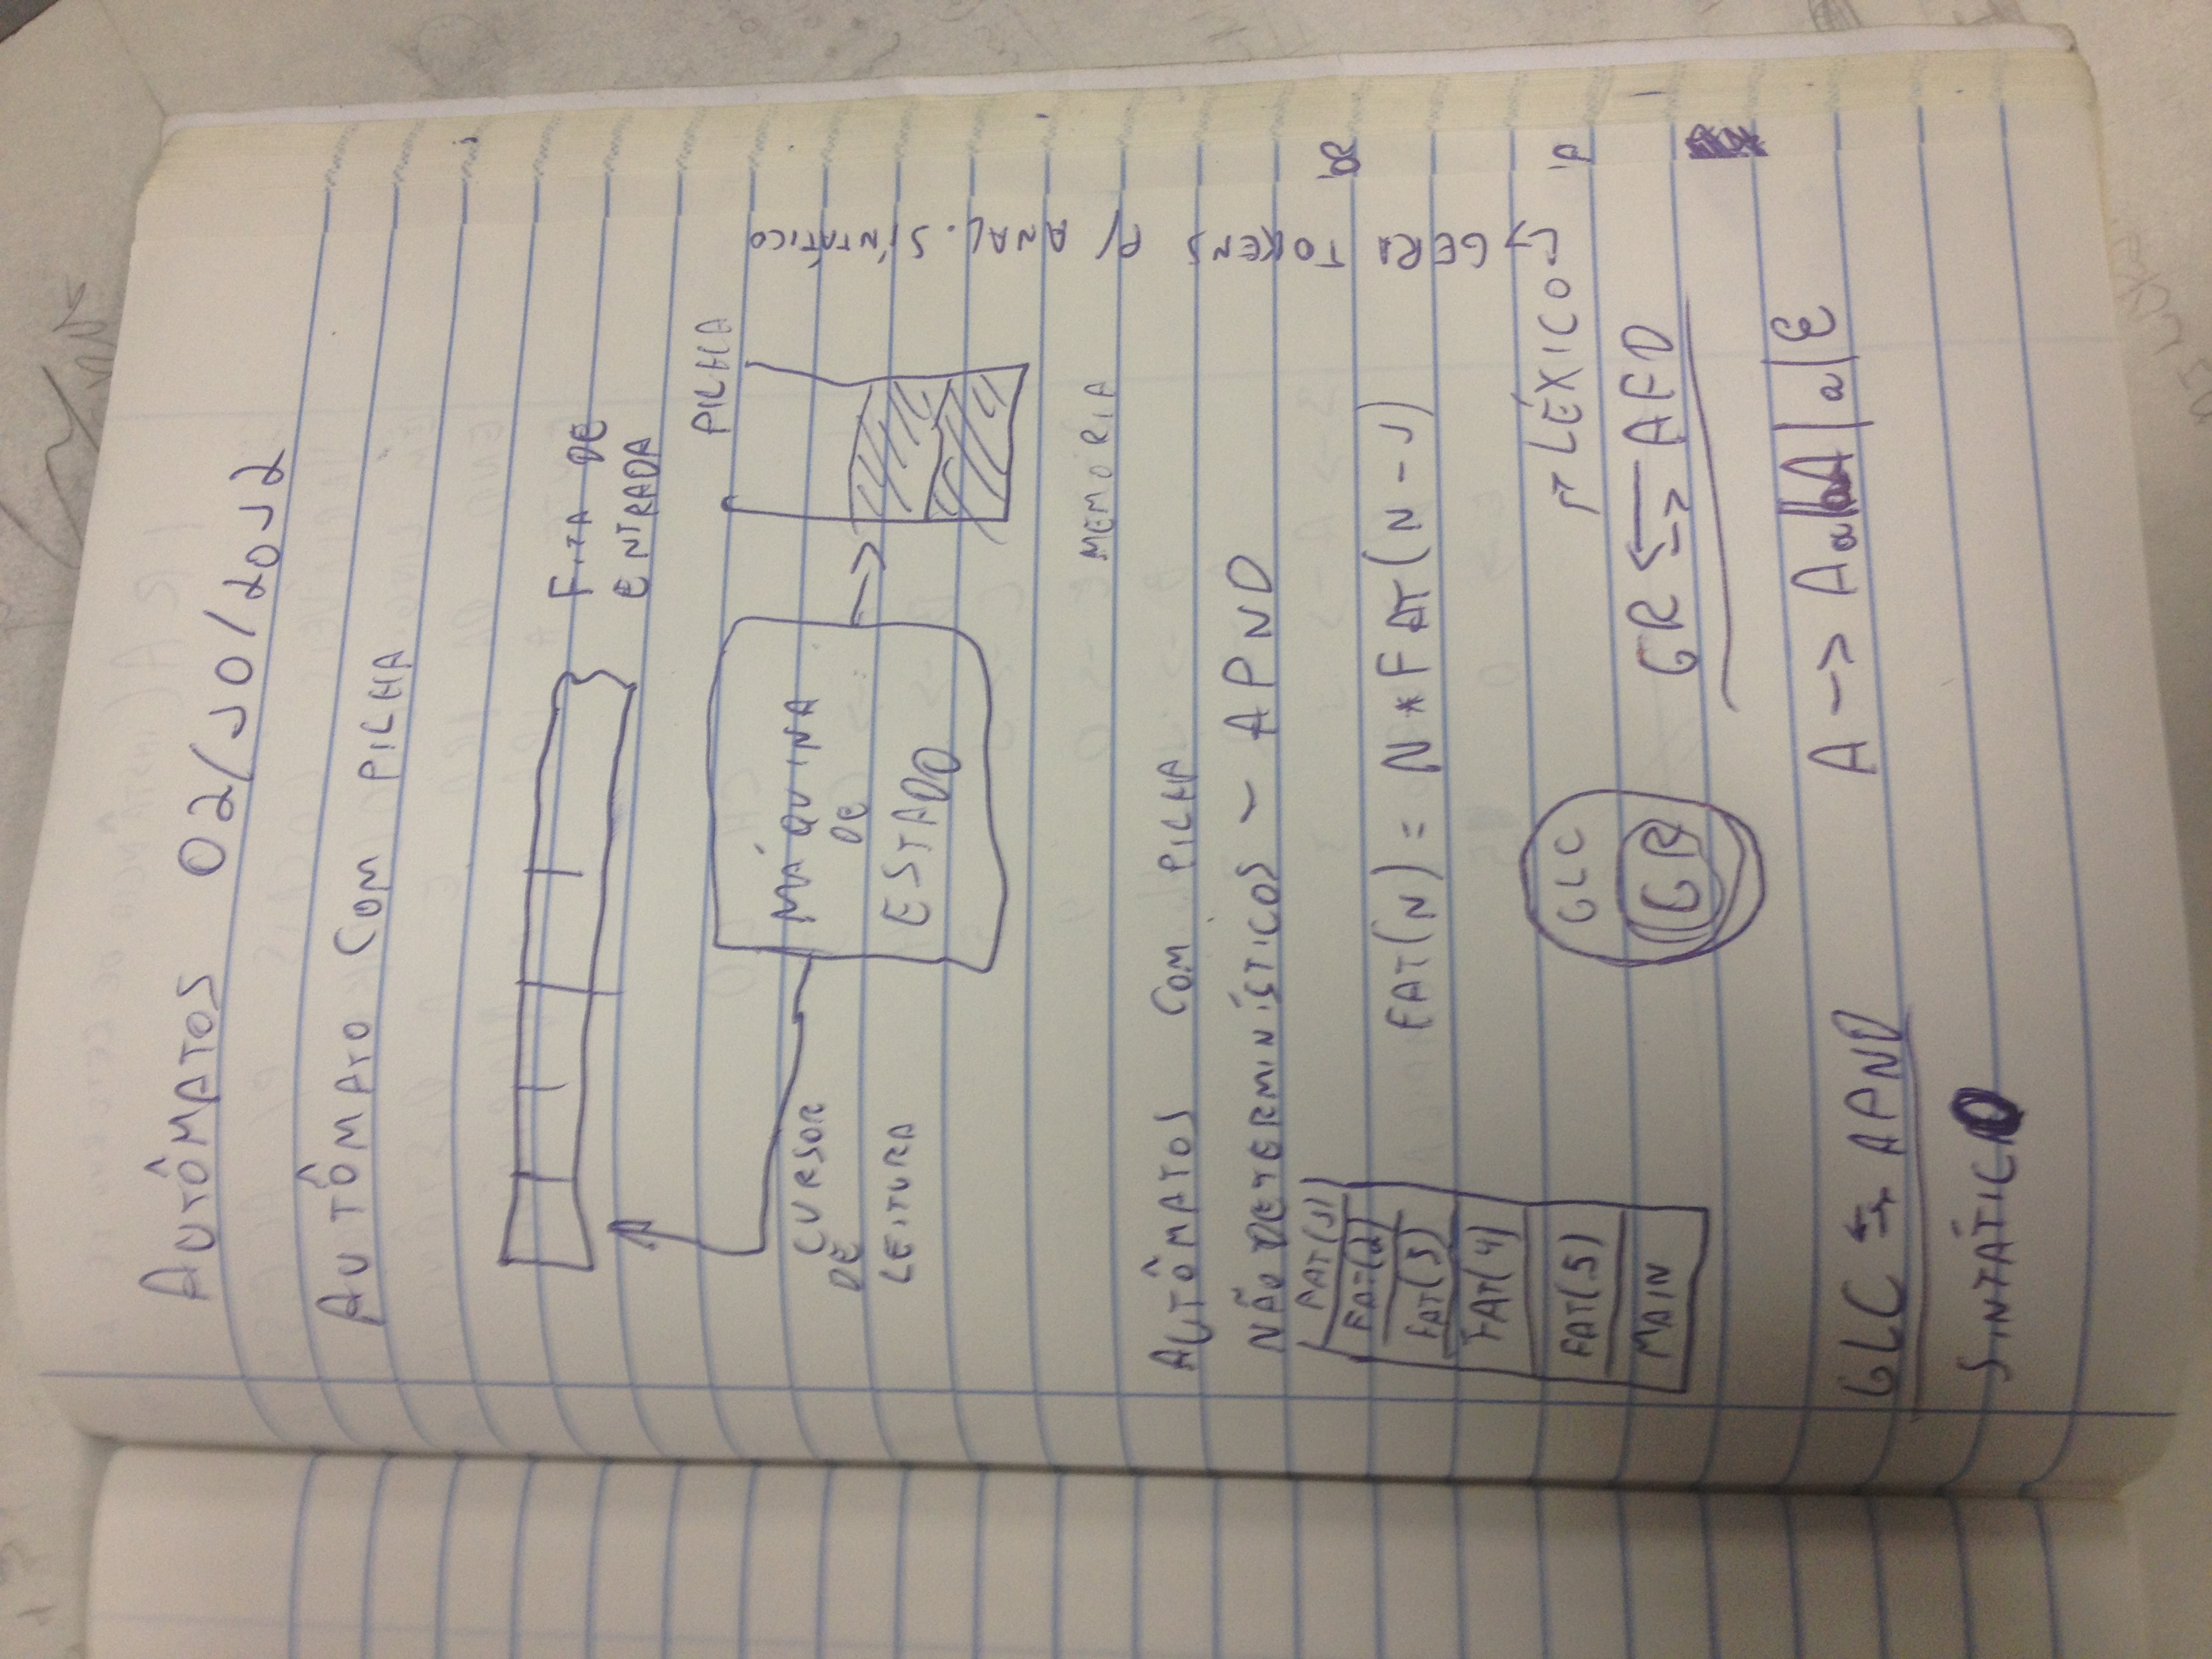 AUTÔMATOS 02/10/2012
AUTÔMATO COM PILHA
FITA DE
ENTRADA
PILHA
CURSOR
DE
LEITURA
MÁQUINA
DE
ESTADO
MEMORIA
AUTÔMATOS COM PILHA
NÃO DETERMINÍSTICOS - APND
FAT(1)
FAT(2)
FAT(3)
FAT(4)
FAT(5)
MAIN
FAT(N) = N * FAT(N-1)
GLC
GR
LÉXICO
GERA TOKENS P/ ANAL. SINTÁTICO
GR ⇆ AFD
A -> Aa|bA|a|ε
GLC ⇆ APND
SINTÁTICO